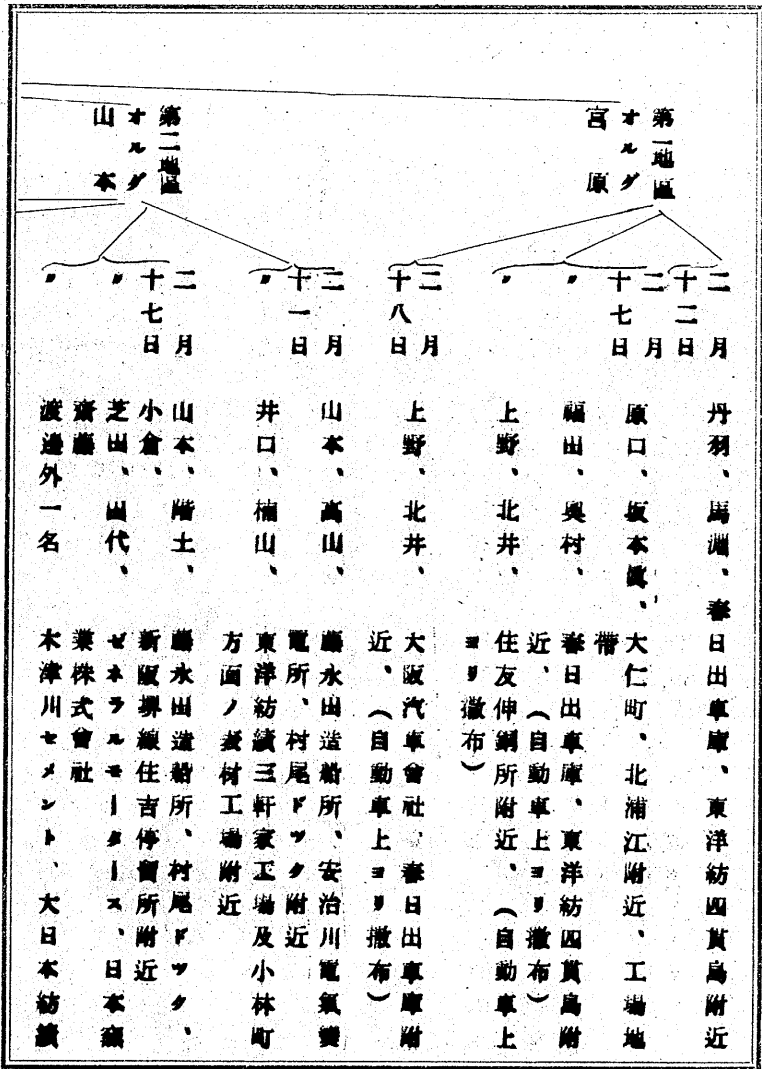 第一地區
オルグ
宮原
二月十二日
丹羽、馬淵、
春日出車庫、東洋紡四貫島附近
二月十七日
原口、坂本
大仁町、北浦江附近、工場地
帶
〃
福田、奥村、
春日出車庫、東洋紡四貫島附
近、(自動車上ヨリ撒布)
〃
上野、北井、
住友伸銅所附近、(自動車上
ヨリ撒布)
二月十八日
上野、北井、
大阪汽車會社、春日出車庫附
近、(自動車上ヨリ撒布)
第二地區
オルグ
山本
二月十一日
山本、高山、
藤永田造船所、安治川電氣變
電所、村尾ドック附近
〃
井口、楠山、
東洋紡績三軒家工場及小林町
方面ノ製材工場附近
二月十七日
山本、階土、
小倉、
藤永田造船所、村尾ドック、
新阪堺線住吉停留所附近
〃
芝田、田代、
齋藤
ゼネラルモータース、日本
業株式會社
〃
渡邊外一名
木津川セメント、大日本紡績